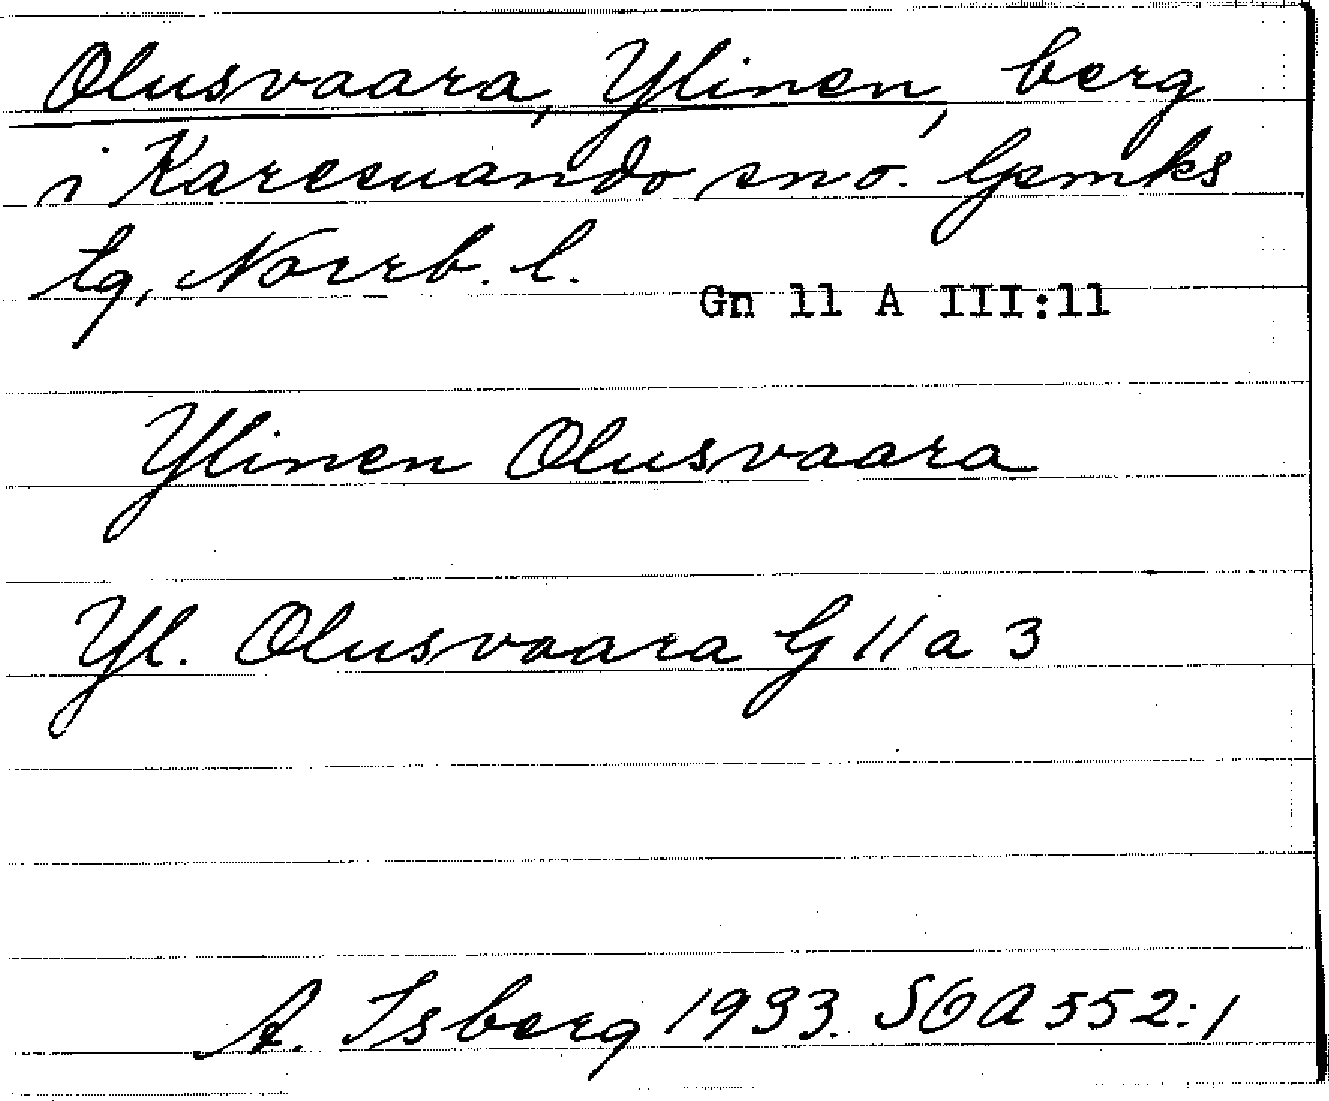 Olusvaara, Ylinen, berg
i Karesuando sn o. lpmks
tg, Norrb. l.
Gn 11 A III:11
Ylinen Olusvaara
Yl. Olusvaara G 11 a 3
A. Isberg 1933. SOA 552:1